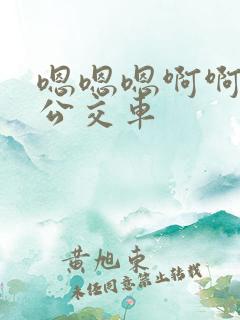 嗯嗯嗯啊啊
公交车
黄旭东
未经同意禁止转载